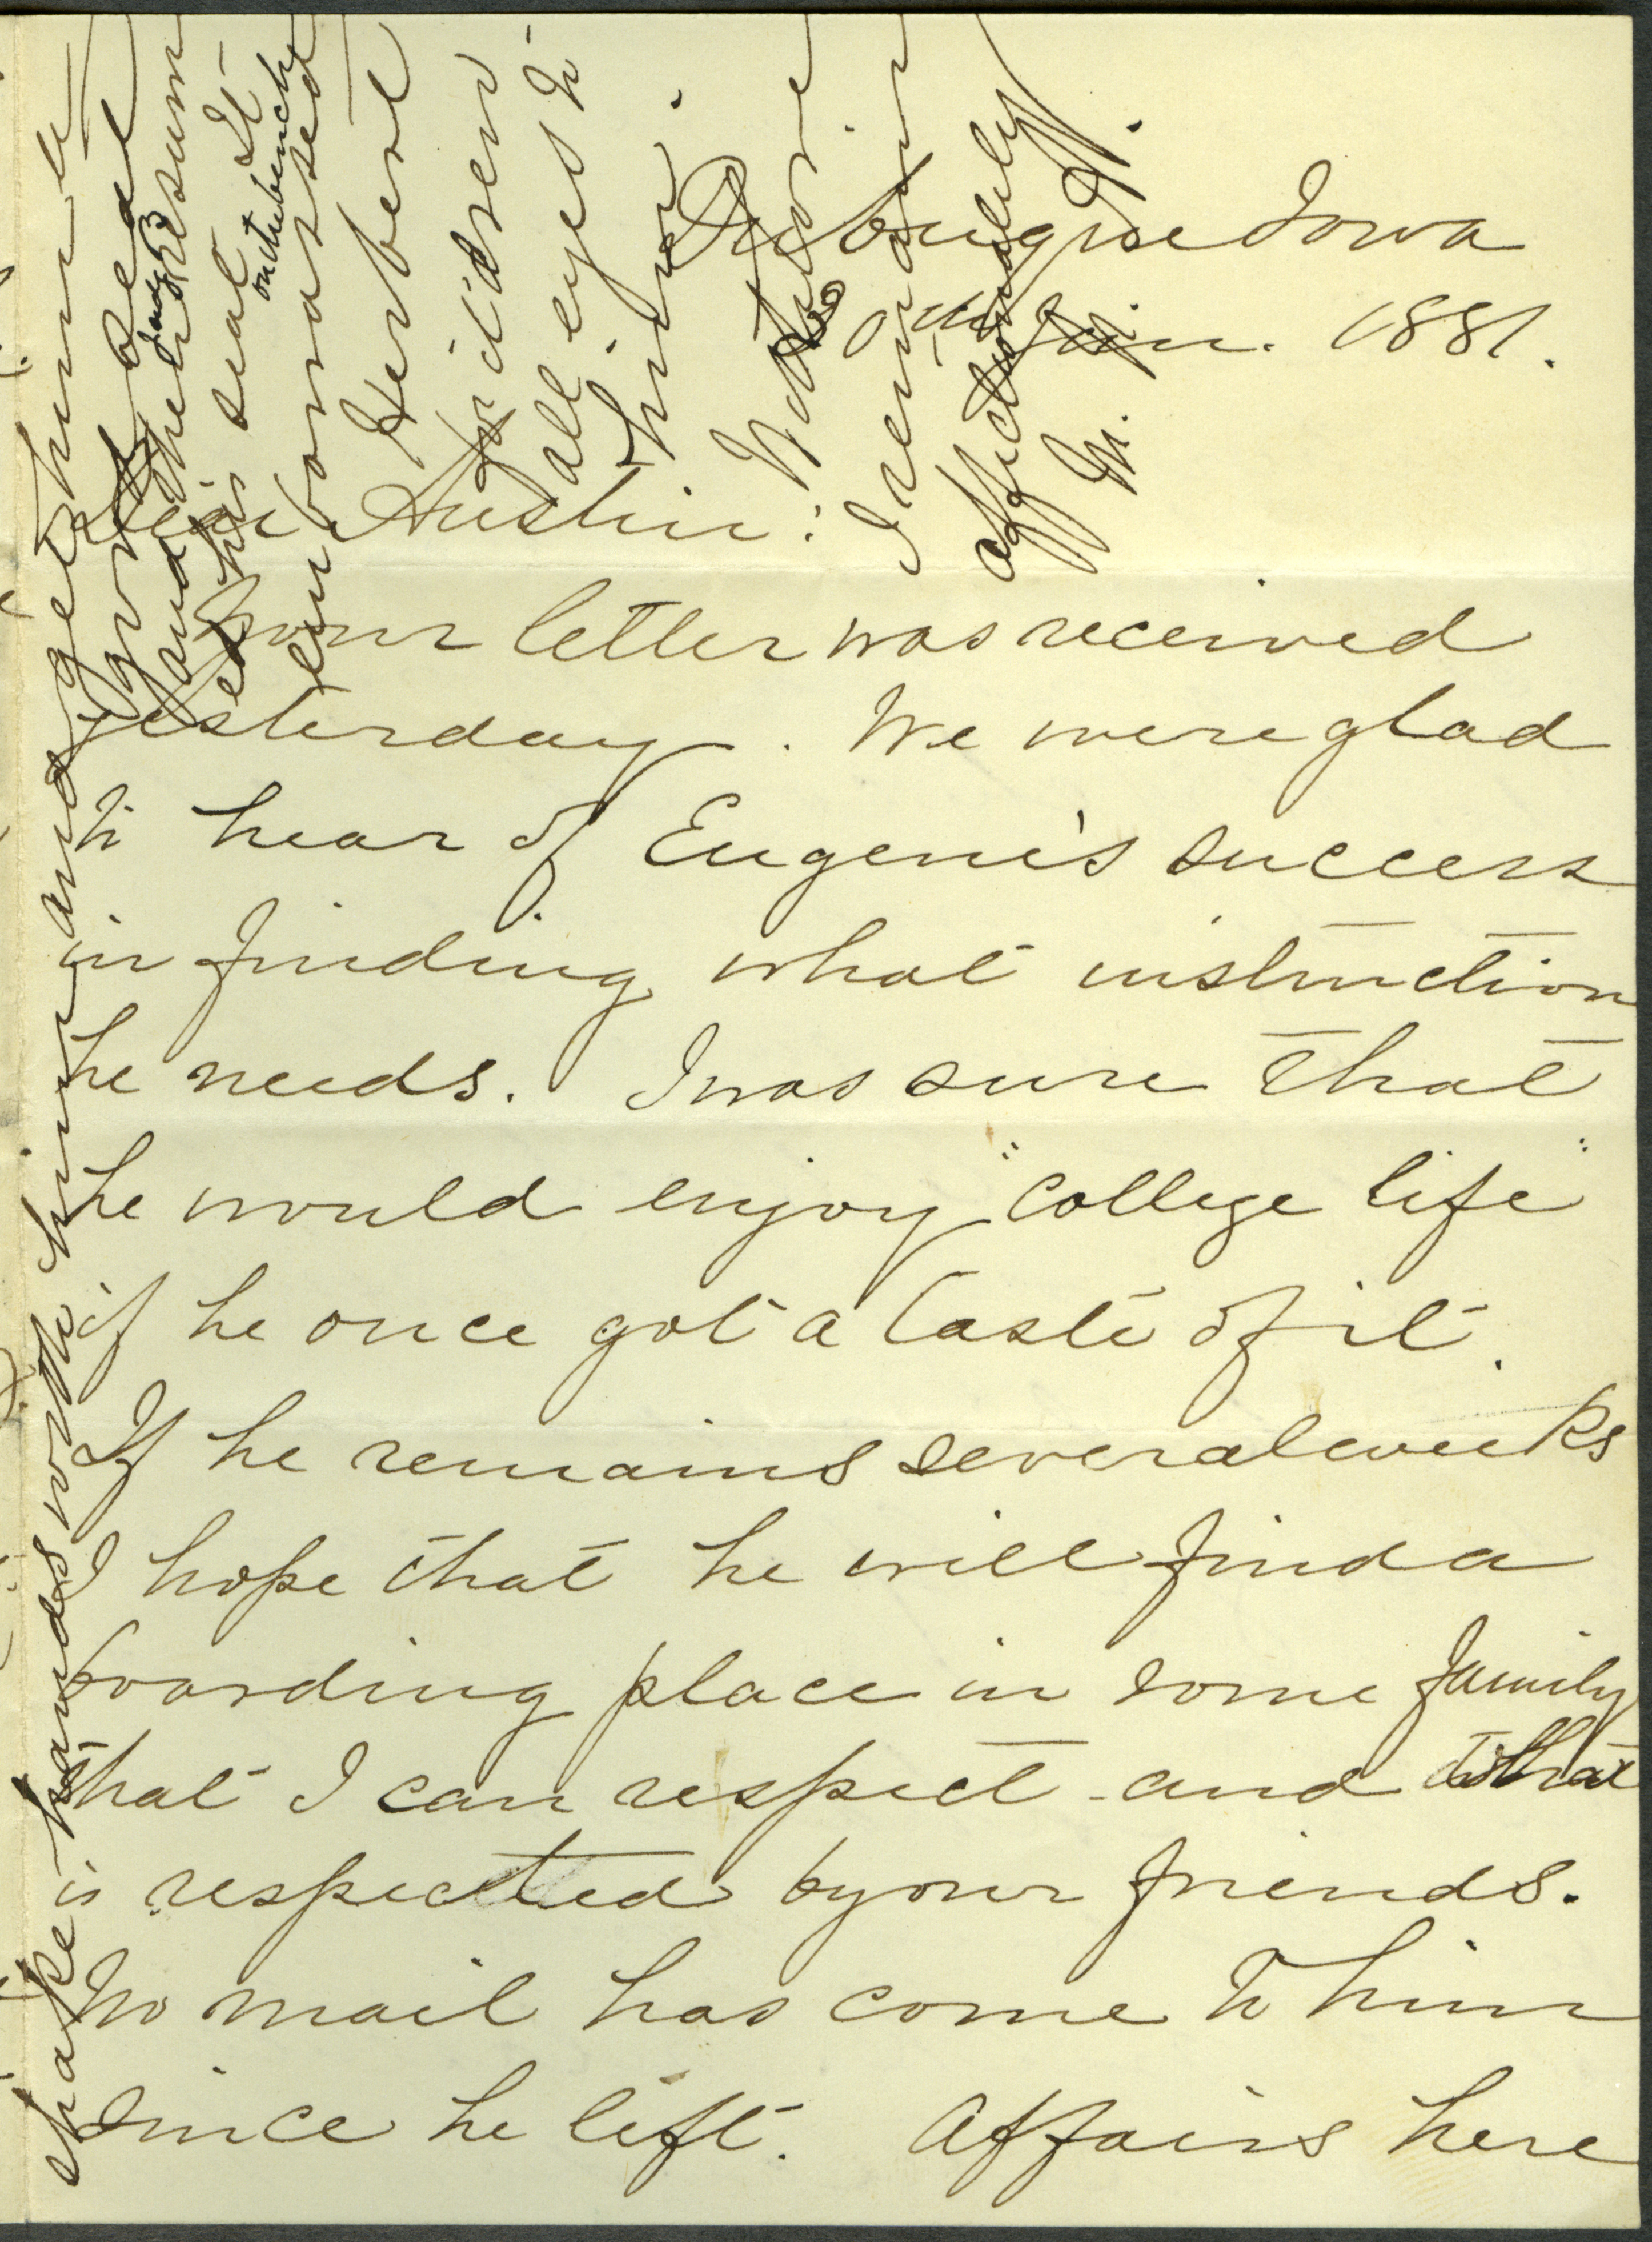 Dubuque Iowa
Jan. 1881.
Dear Austin:
Your letter was received
yesterday. We were glad
to hear of Eugene's success
in finding what instruction
he needs. I was sure that
he would enjoy "college life"
if he once got a taste of it.
If he remains several weeks
I hope that he will find a
boarding place in some family
that I can respect and that
is respected by our friends.
No mail has come to him
since he left. Affairs here
shake hands with him and get him to
and then
his seat It
on the bench
embarrassed
Herbert
for it'd seem
all eyes to
him.
I remain
affectionately
M.